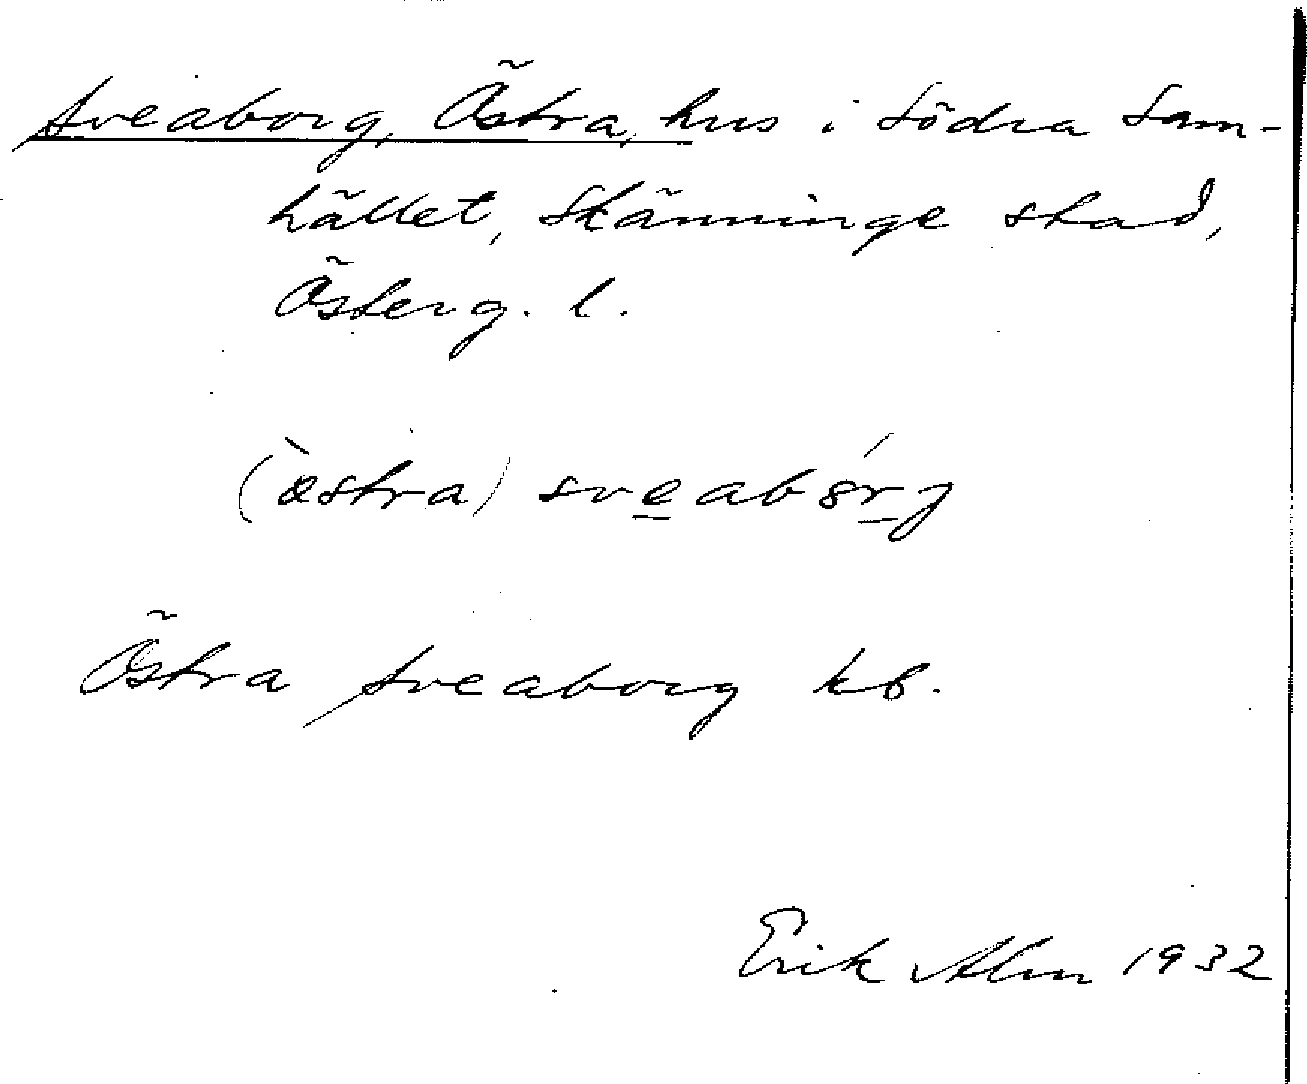 Sveaborg, Östra, hus i Södra Sam-
hället, Skänninge stad,
Österg. l.
(östra) sveabórj
Östra Sveaborg kb.
Erik Alm 1932